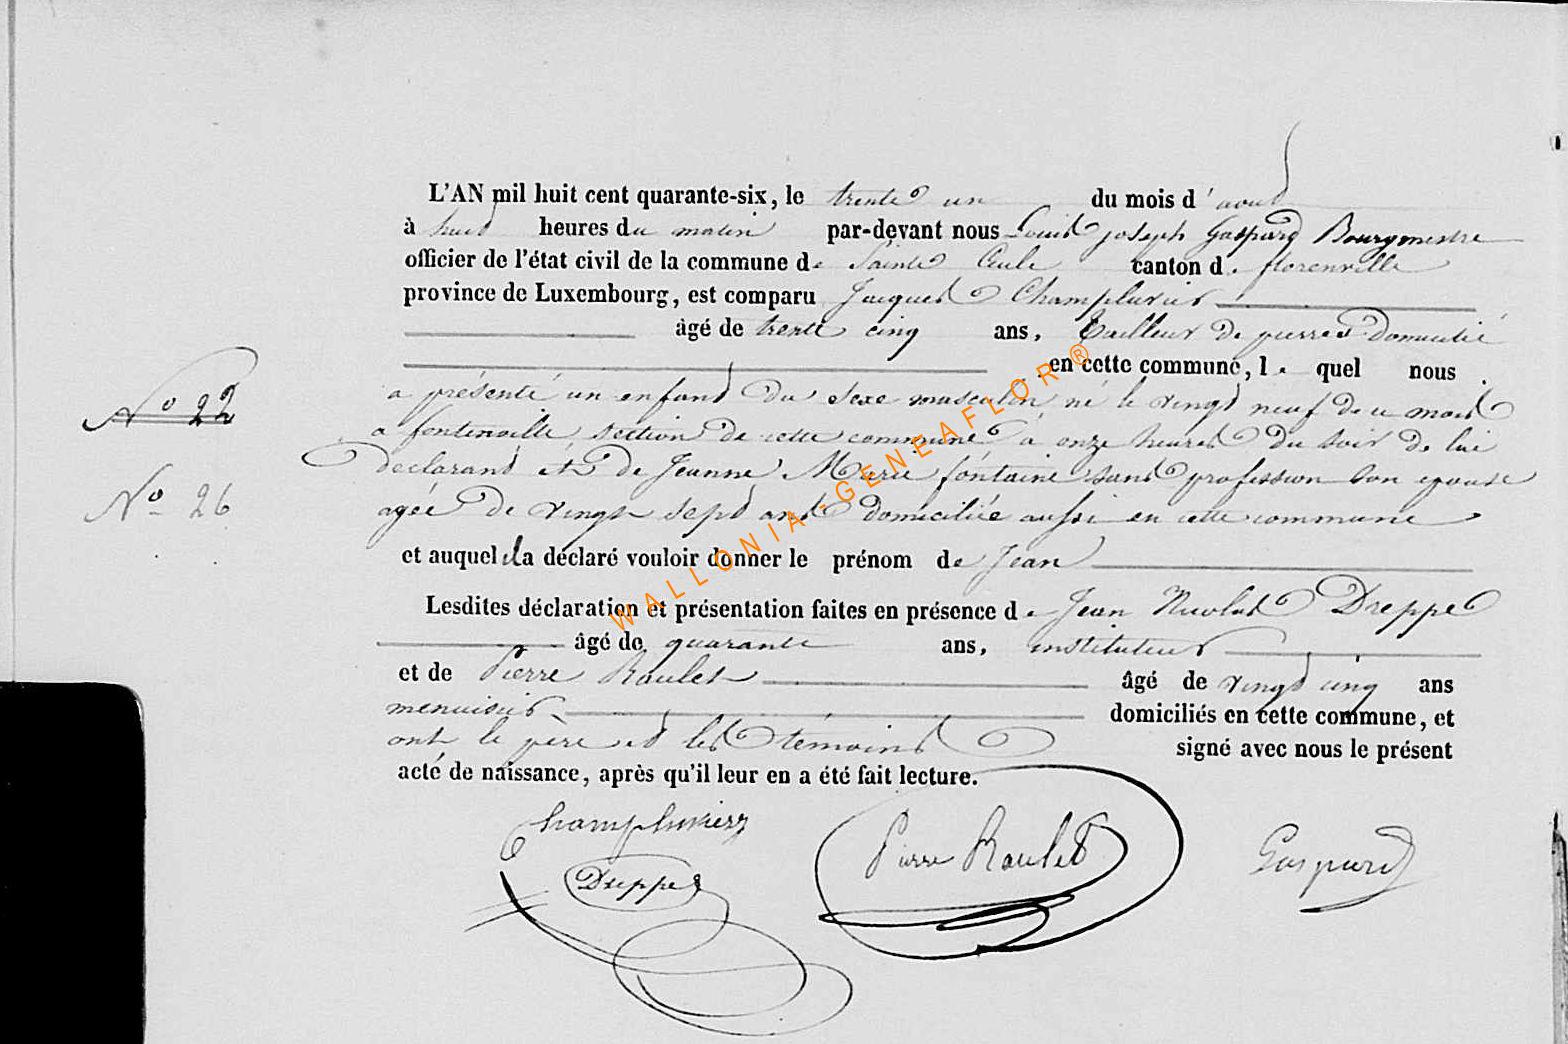 L'AN mil huit cent quarante-six, le trente un du mois d'aout
à huit heures du matin par-devant nous Louis joseph Gaspard Bourgmestre
officier de l'état civil de la commune de Sainte Cecile canton de florenville
province de Luxembourg, est comparu Jacques Champluvier
âgé de trente cinq ans, tailleur de pierres domicilié
en cette commune, le quel nous
a présenté un enfant du sexe masculin né le vingt neuf de ce mois
N° 22
a fontenoille section de cette commune à onze heures du soir de lui
déclarant et de Jeanne Marie fontaine sans profession son epouse
N° 26
agée de vingt sept ans domiciliée aussi en cette commune
et auquel il a déclaré vouloir donner le prénom de Jean
Lesdites déclaration et présentation faites en présence de Jean Nicolas Dreppe
âgé de quarante ans, instituteur
et de Pierre Raulet âgé de vingt cinq ans
menuisier domiciliés en cette commune, et
ont le père et les témoins signé avec nous le présent
acte de naissance, après qu'il leur en a été fait lecture.
Champluvier
Pierre Raulet
Gaspard
Dreppe
WALLONIA-GENEAFLOR ®